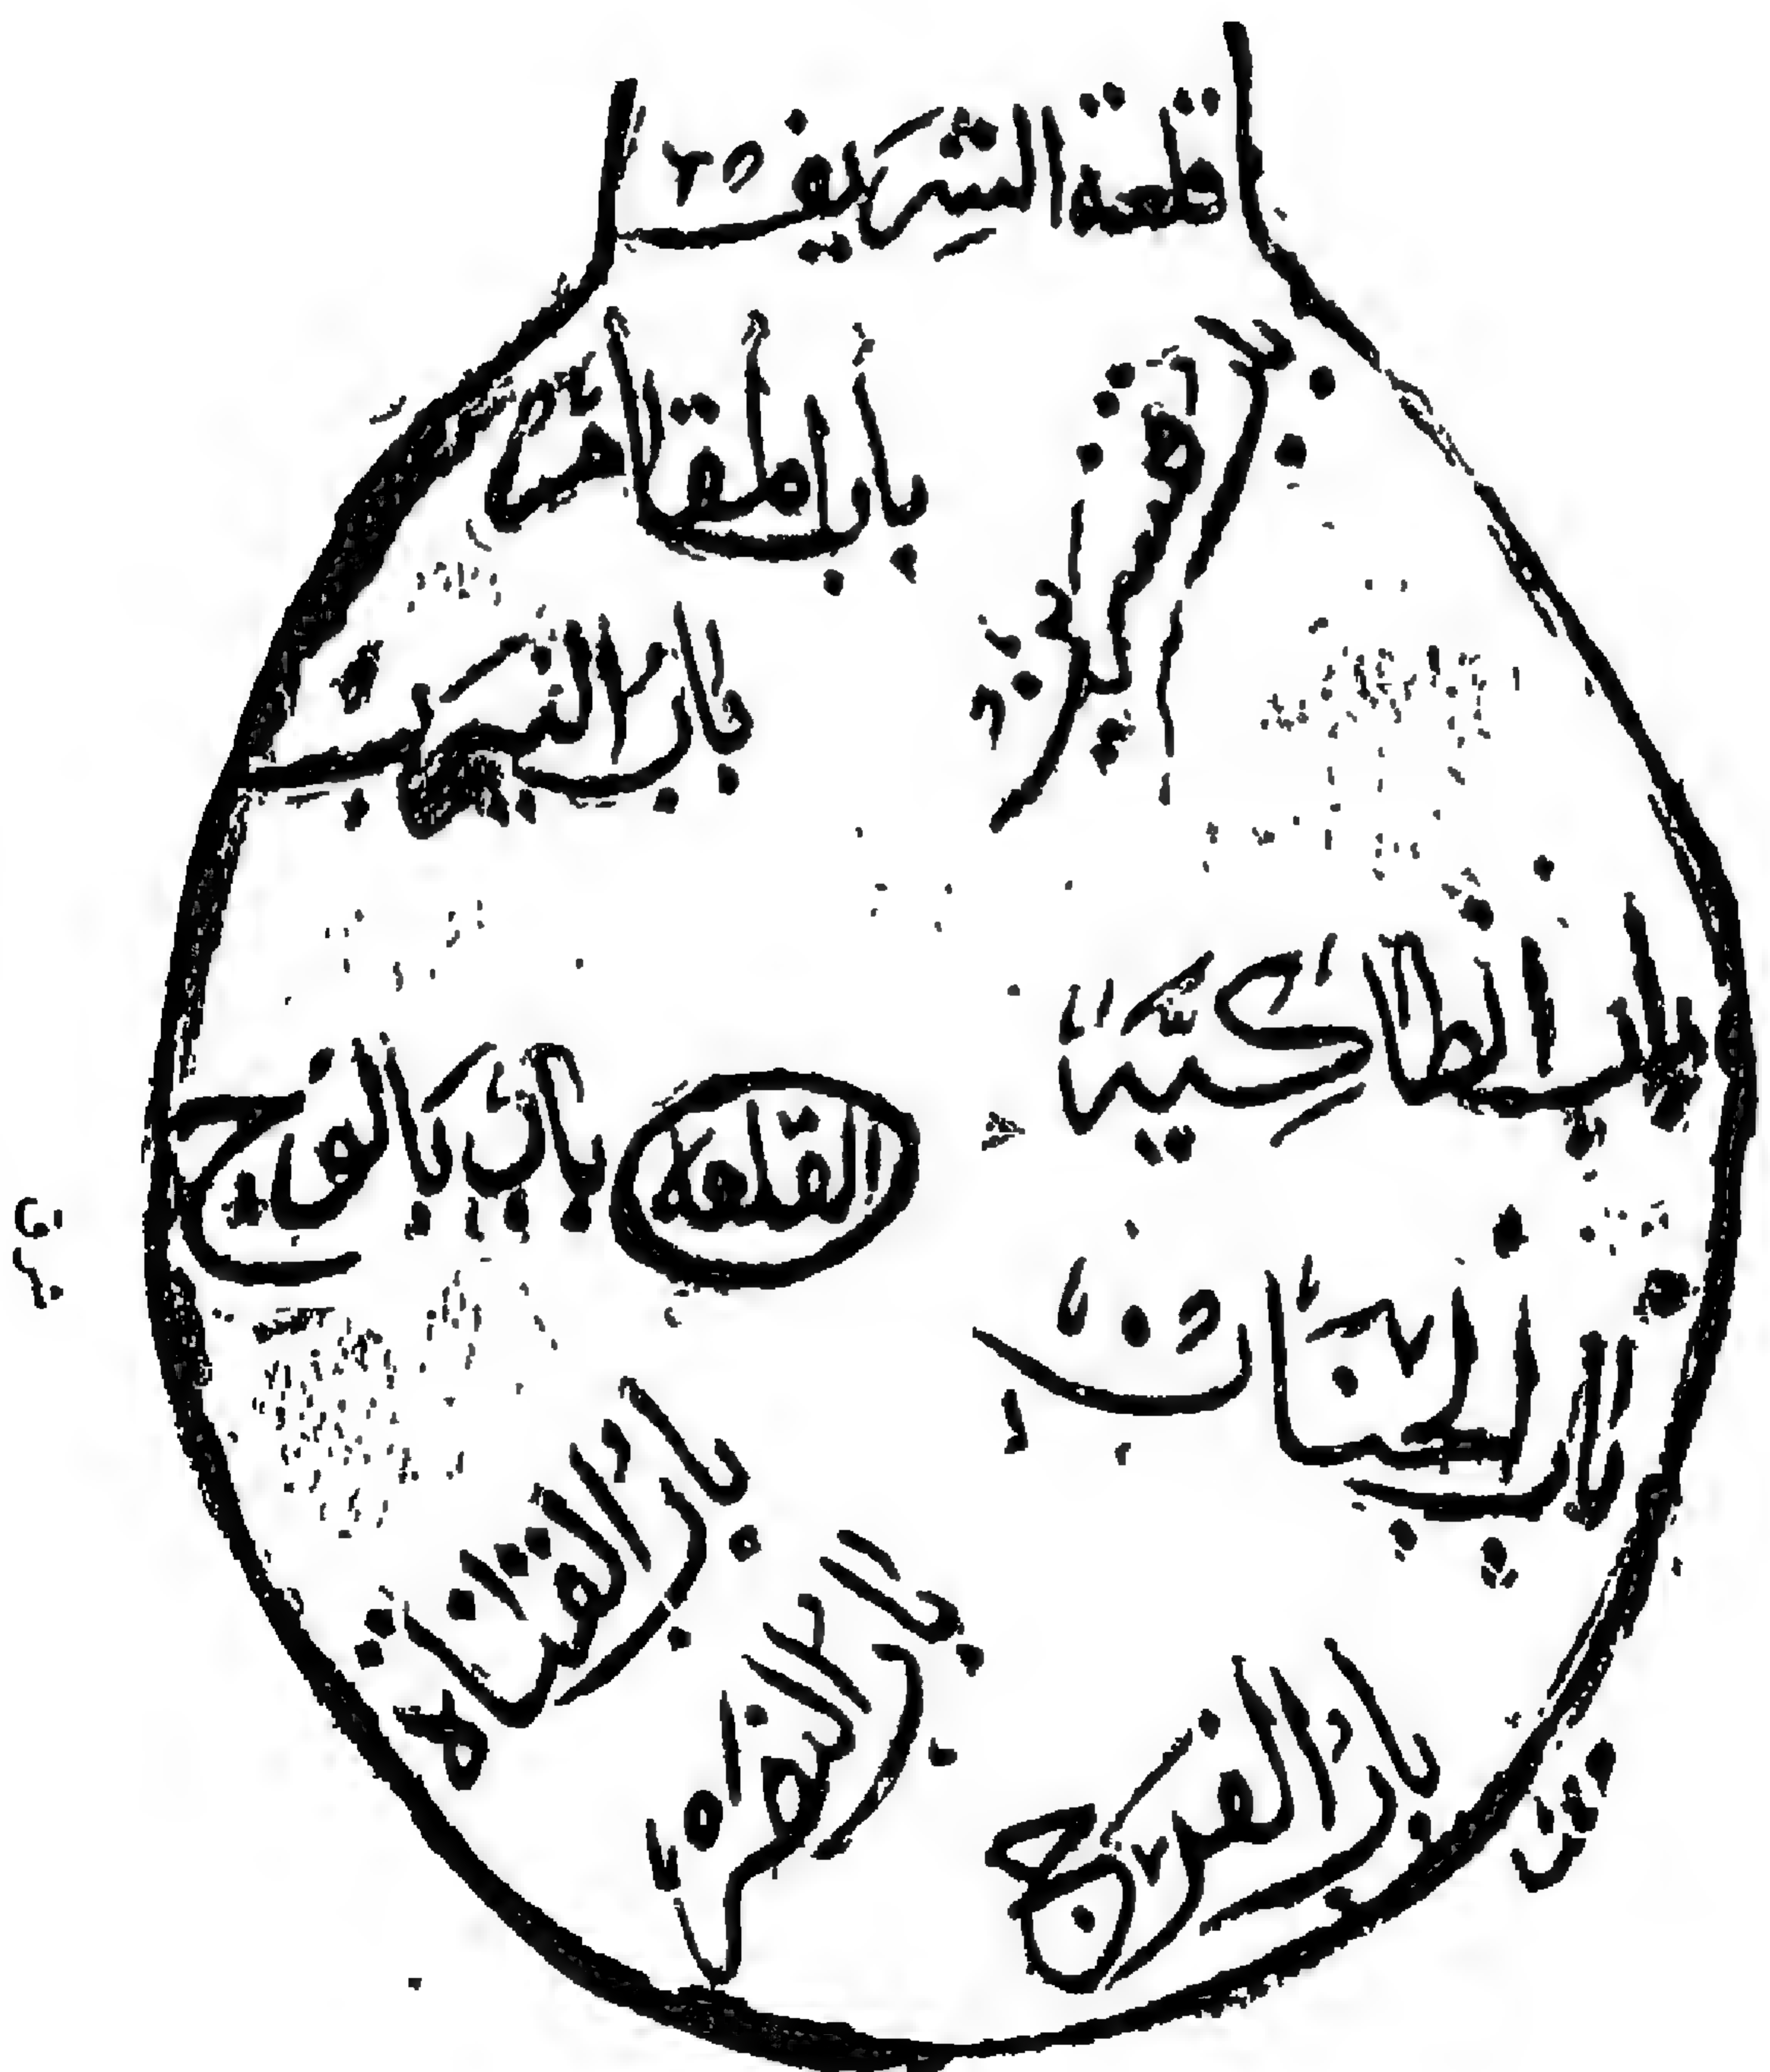 قلعة الشريف
باب المقام
باب قنسرين
باب النيرب
باب انطاكية
القلعة
باب الجنان
باب القناة
باب النصر
باب الفرج